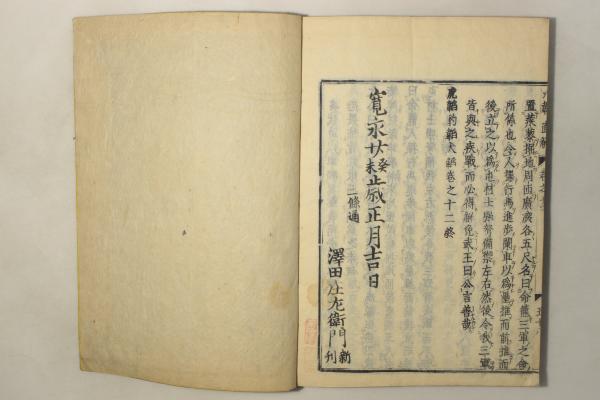 置蒺䔧推地周匝廣廣各五尺名曰命籠三軍之命
所係也令人操行馬進歩闌車以爲壘推而前推而
後立之以爲屯材士強弩備禦左右然後令我三軍
皆與之疾戰而必得解免武王曰公言善哉
虎韜豹韜犬韜卷之十二終
寛永廿癸未歳正月吉日
二條通
澤田庄左衛門
新刊